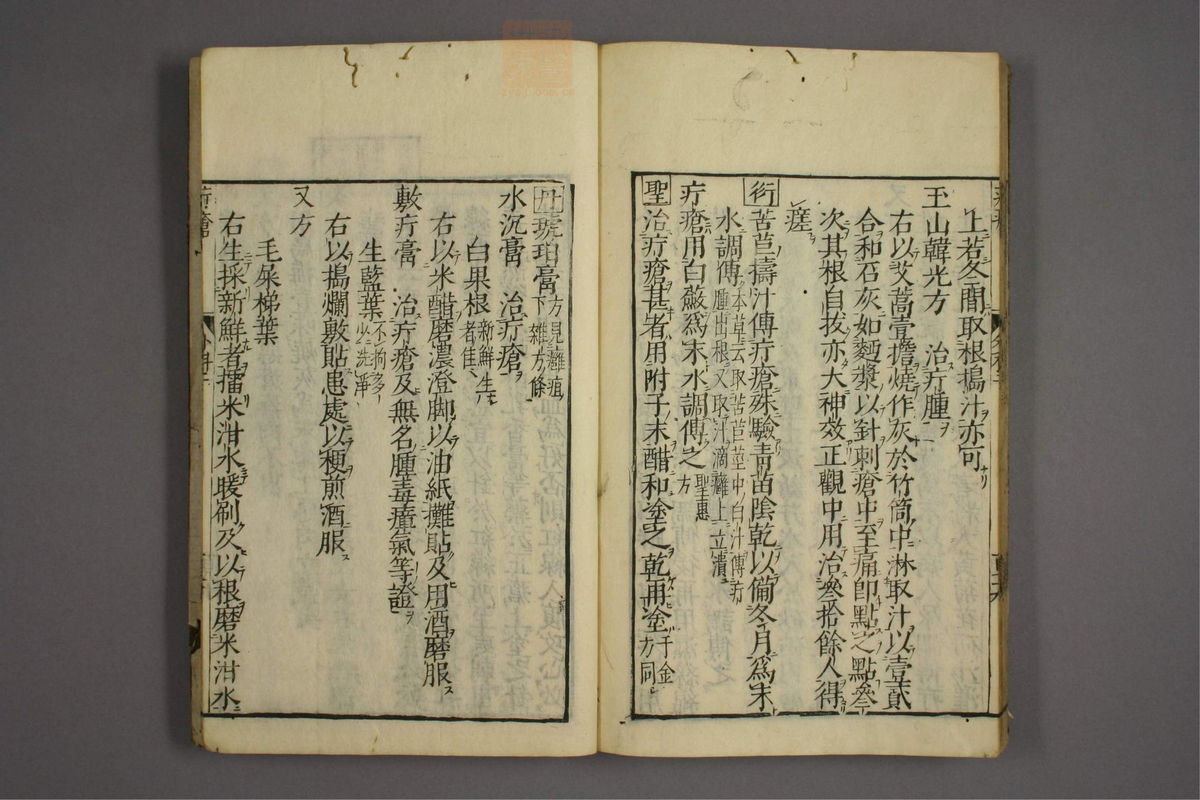 上若冬間取根搗汁亦可
王山韓光方　治疔腫
右以艾蒿壹擔燒作灰於竹筒中淋取汁以壹貳
合和石灰如麵漿以針刺瘡中至痛即點之點叄
次其根自拔亦大神效正觀中用治叄拾餘人得
瘥
衍苦苣擣汁傅疔瘡殊驗青苗陰乾以備冬月爲末
水調傅本草云取苦苣莖中白汁傅疔
腫出根又取汁滴癰上立潰
疔瘡用白蘞爲末水調傅之聖惠
方
聖治疔瘡甚者用附子末醋和塗之乾再塗千金
方同
丹琥珀膏方見癰疽
下雜方條
水沉膏　治疔瘡
白果根新鮮生
者佳
右以米醋磨濃澄脚以油紙攤貼及用酒磨服
敷疔膏　治疔瘡及無名腫毒瘴氣等證
生藍葉不拘多
少洗淨
右以搗爛敷貼患處以梗煎酒服
又方
毛枲梯葉
右生採新鮮者擂米泔水暖刷及以根磨米泔水